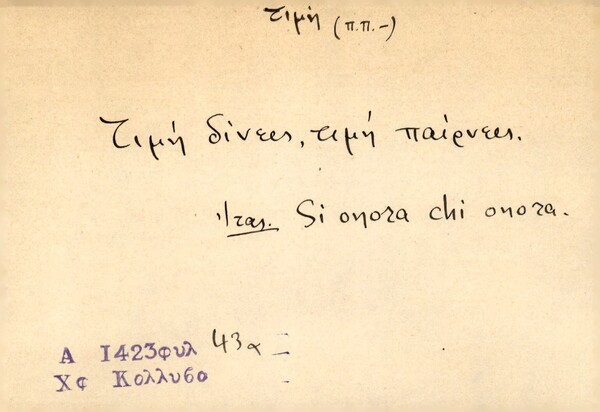 τιμή (π.π.-)
Τιμή δίνεις, τιμή παίρνεις.
Ἰταλ. Si onora chi onora.
Α 1423φυλ 43α
Χφ Κολλυβο